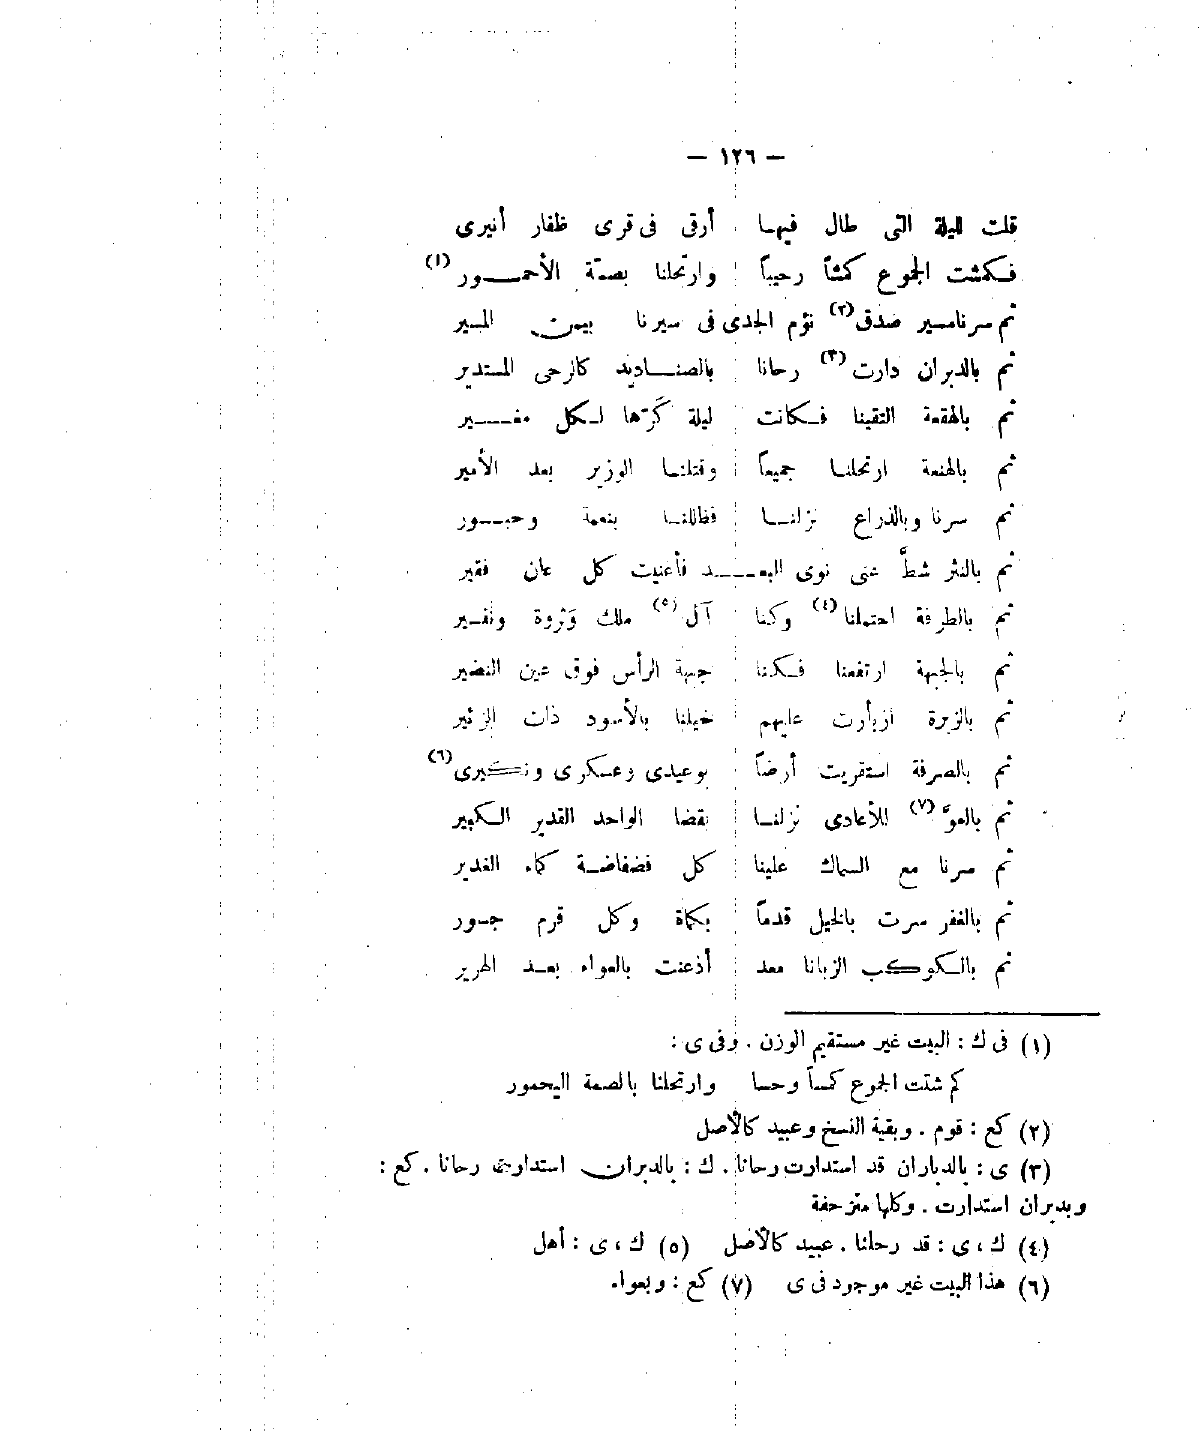 — ١٢٦ —
قلت لليلة التى طال فيها أرقى فى قرى ظفار أنيرى
فكمشت الجموع كمشاً رحيباً وارتحلنا بصمّة الأحمور (١)
ثم سرنا مسير صدق (٢) نؤم الجدى فى سيرنا بيمن المسير
ثم بالدبران دارت (٣) رحانا بالصناديد كالرحى المستدير
ثم بالهقعة التقينا فكانت ليلة كَرّها لكل مغير
ثم بالهنعة ارتحلنا جميعاً وقتلنا الوزير بعد الأمير
ثم سرنا وبالذراع نزلنا فظللنا بنعمة وحبور
ثم بالنثر شطَّ عنى نوى البعد فأعنيت كل عان فقير
ثم بالطرفة احتملنا (٤) وكنا آل (٥) ملك وَثروة ونفير
ثم بالجبهة ارتفعنا فكنا جبهة الرأس فوق عين النضير
ثم بالزبرة ازبأرت عليهم خيلنا بالأسود ذات الزئير
ثم بالصرفة استقريت أرضاً بوعيدى وعسكرى ونكيرى (٦)
ثم بالعوَّ (٧) للأعادى نزلنا بقضا الواحد القدير الكبير
ثم سرنا مع السماك علينا كل فضفاضة كماء الغدير
ثم بالغفر سرت بالخيل قدماً بكماة وكل قرم جسور
ثم بالكوكب الزبانا معد أذعنت بالعواء بعد الهرير
(١) فى ك : البيت غير مستقيم الوزن . وفى ى :
كم شتت الجموع كمساً وحسا وارتحلنا بالصمة اليحمور
(٢) كع : قوم . وبقية النسخ وعبيد كالأصل
(٣) ى : بالدباران قد استدارت رحانا . ك : بالدبران استدارت رحانا . كع :
وبدبران استدارت . وكلها متزحفة
(٤) ك ، ى : قد رحلنا . عبيد كالأصل (٥) ك ، ى : أهل
(٦) هذا البيت غير موجود فى ى (٧) كع : وبعواء